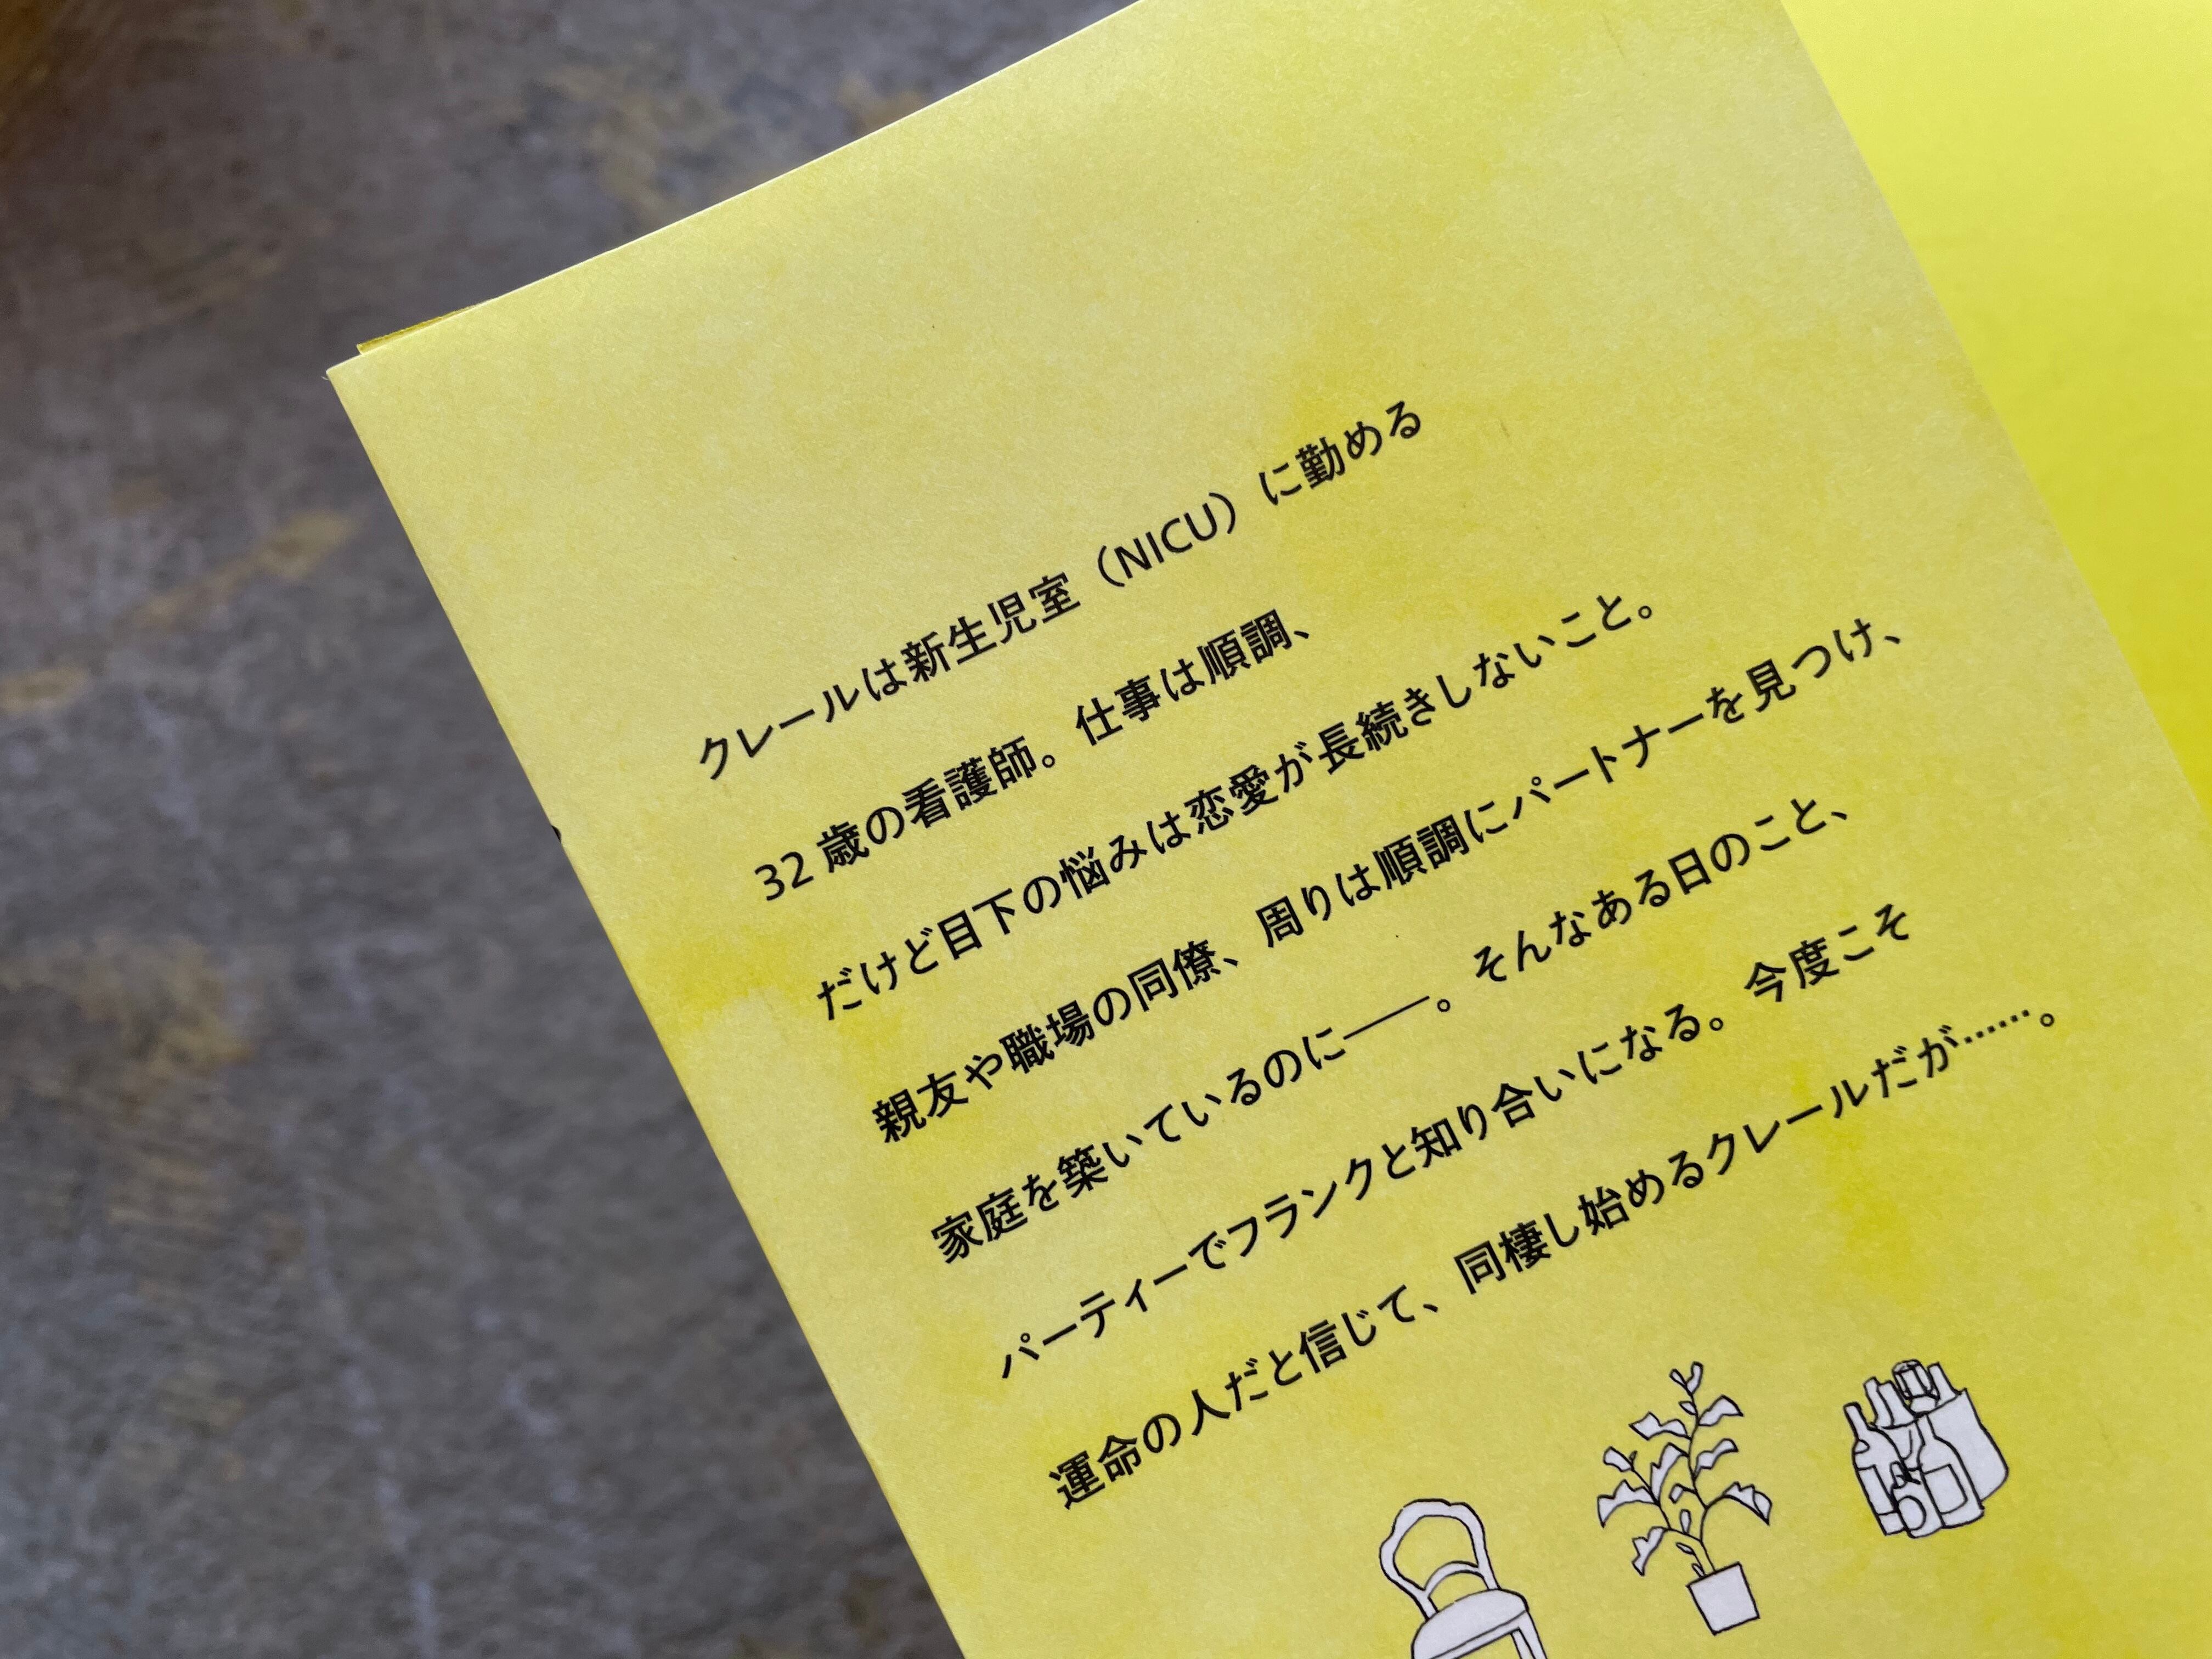 クレールは新生児室（NICU）に勤める
32歳の看護師。仕事は順調、
だけど目下の悩みは恋愛が長続きしないこと。
親友や職場の同僚、周りは順調にパートナーを見つけ、
家庭を築いているのに――。そんなある日のこと、
パーティーでフランクと知り合いになる。今度こそ
運命の人だと信じて、同棲し始めるクレールだが……。